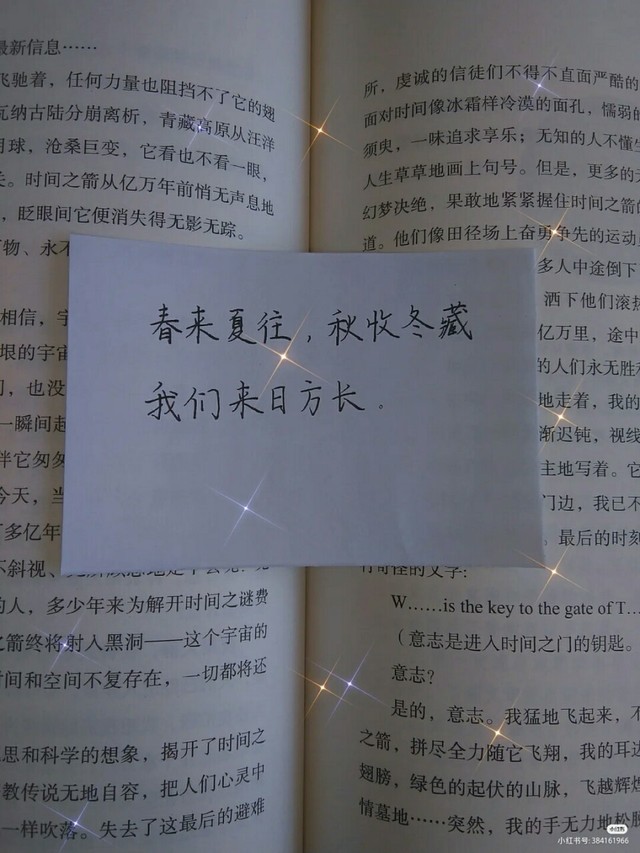 最新信息……
飞驰着，任何力量也阻挡不了它的翅
瓦纳古陆分崩离析，青藏高原从汪洋
月球，沧桑巨变，它看也不看一眼，
。时间之箭从亿万年前悄无声息地
，眨眼间它便消失得无影无踪。
物、永不
相信，宇
垠的宇宙
，也没
一瞬间起
伴它匆匆
今天，当
多亿年
不斜视、
的人，多少年来为解开时间之谜费
之箭终将射入黑洞——这个宇宙的
时间和空间不复存在，一切都将还
思和科学的想象，揭开了时间之
教传说无地自容，把人们心灵中
一样吹落。失去了这最后的避难
春来夏往，秋收冬藏
我们来日方长。
所，虔诚的信徒们不得不直面严酷的
面对时间像冰霜样冷漠的面孔，懦弱的
须臾，一味追求享乐；无知的人不懂生
人生草草地画上句号。但是，更多的
幻梦决绝，果敢地紧紧握住时间之箭的
道。他们像田径场上奋勇争先的运动
多人中途倒下
洒下他们滚热
亿万里，途中
的人们永无胜利
地走着，我的
渐迟钝，视线
主地写着。它
门边，我已不
。最后的时刻
行奇怪的文字：
W……is the key to the gate of T…
（意志是进入时间之门的钥匙。
意志？
是的，意志。我猛地飞起来，不
之箭，拼尽全力随它飞翔，我的耳边
翅膀，绿色的起伏的山脉，飞越辉煌
情墓地……突然，我的手无力地松脱
小红书
小红书号: 384161966